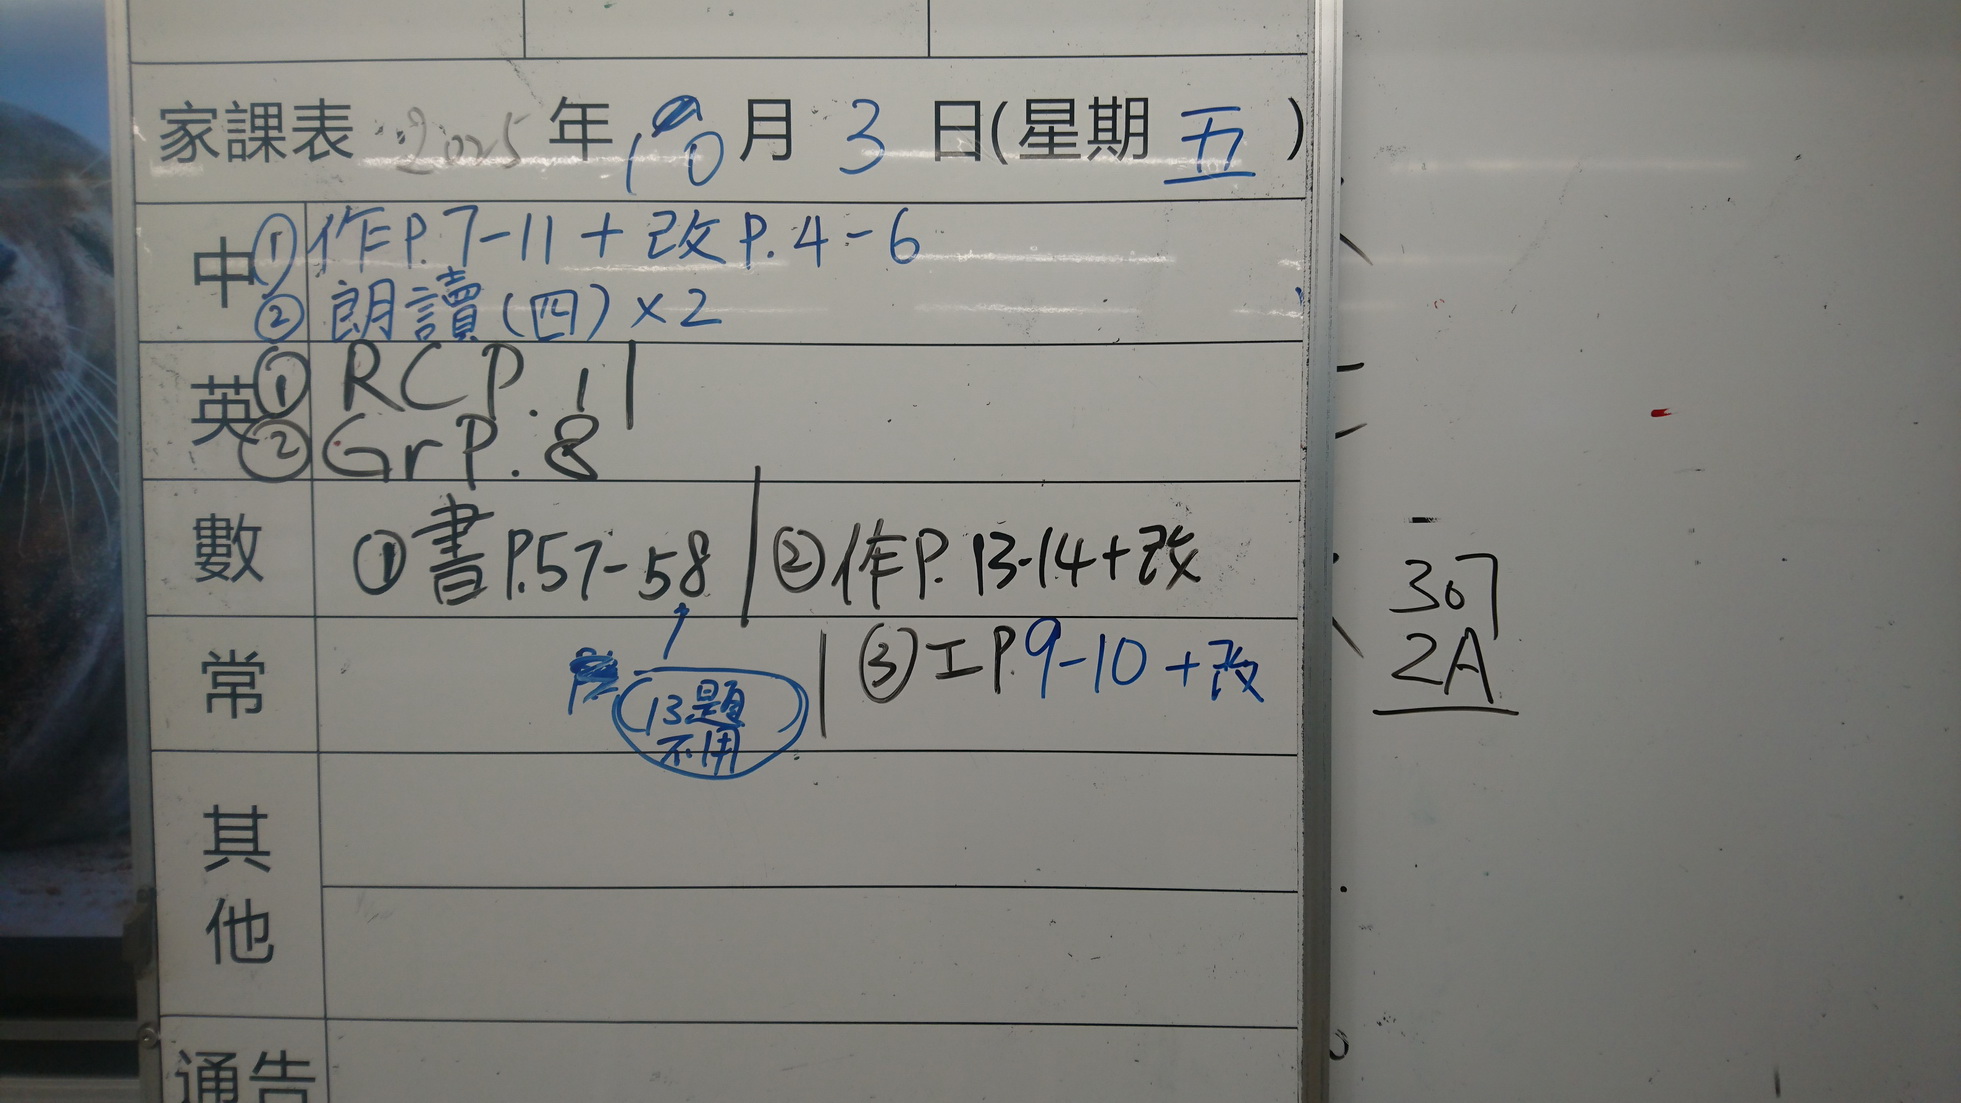 家課表 2025 年 10 月 3 日(星期 五 )
中 ① 作P.7-11 + 改P.4-6
② 朗讀(四)×2
英 ① RC P.11
② Gr P.8
數 ① 書P.57-58 ② 作P.13-14+改
常 ③ 工P.9-10 +改
13題
不用
其
他
通告
307
2A